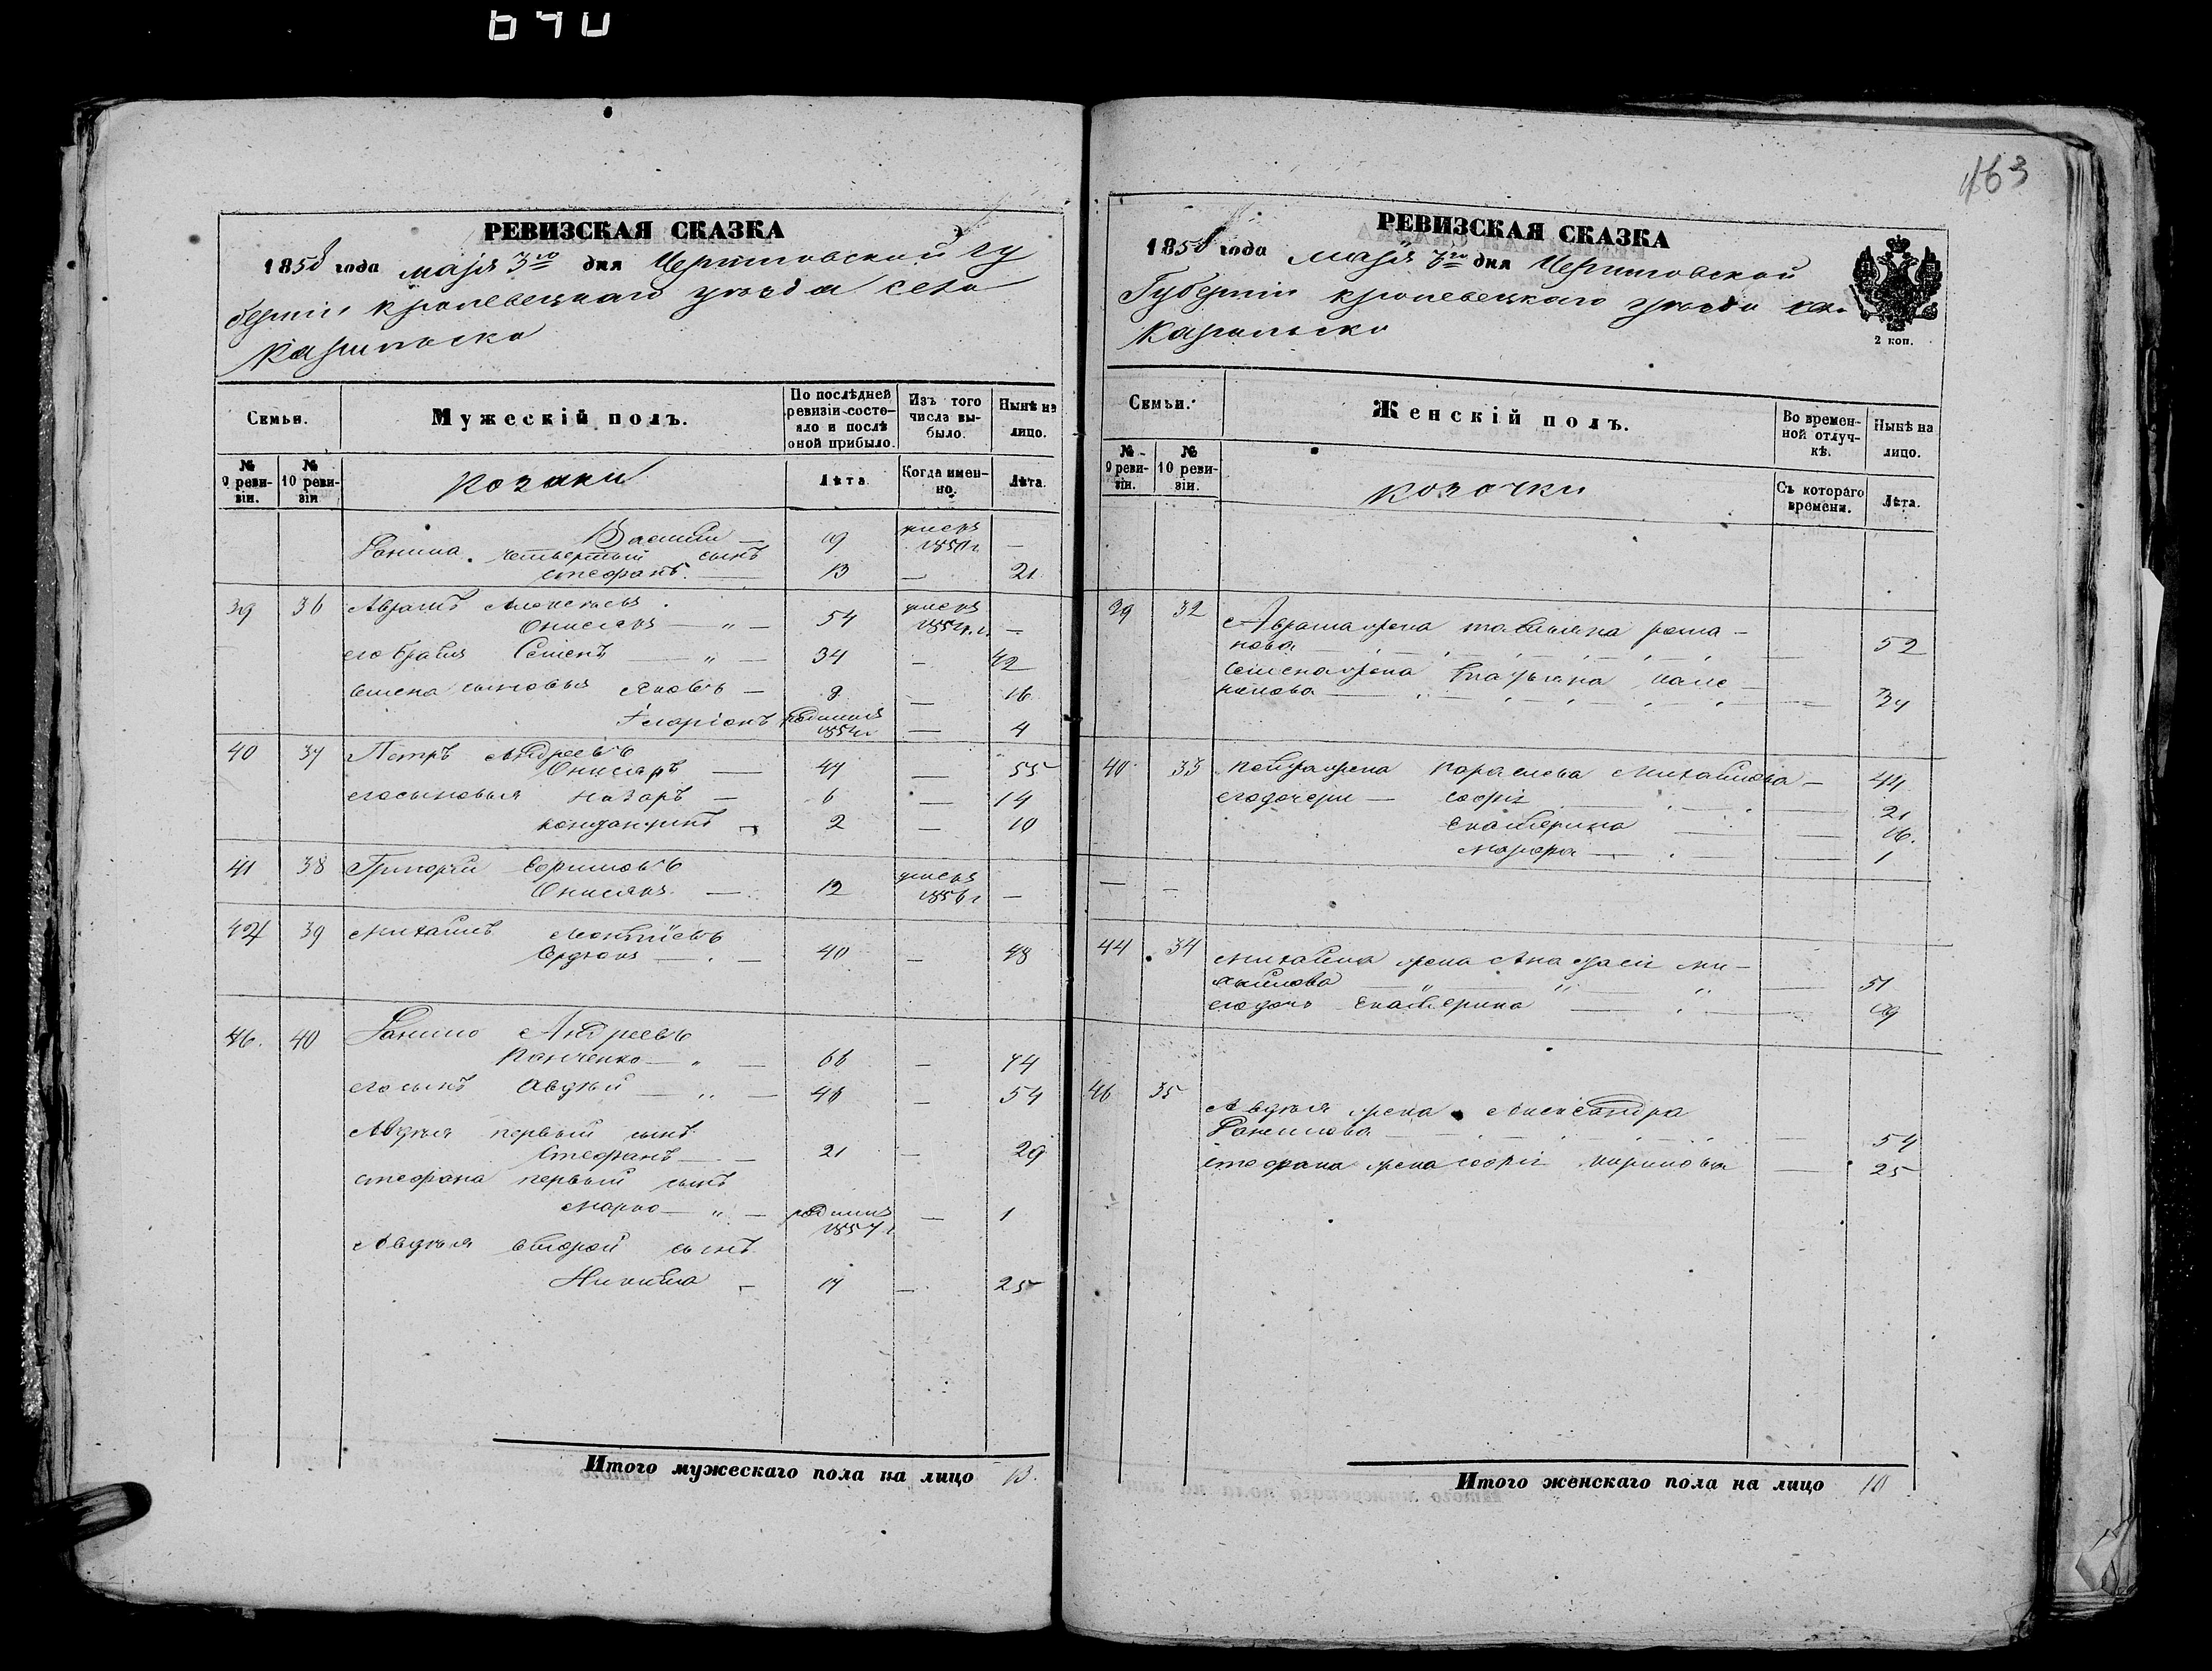 640
163
РЕВИЗСКАЯ СКАЗКА
1858 года маія 3го дня Черниговской гу
берніи кролевецкаго уезда села
Карильска
Семьи.
Мужескій полъ.
По послѣдней ревизіи состояло и послѣ оной прибыло.
Изъ того числа выбыло.
Нынѣ на лицо.
№ 9 ревизіи.
№ 10 ревизіи
козаки
Лѣта
Когда именно.
Лѣта.
Василий — 19 умеръ 1850 г —
Данила четвертый сынъ
стефанъ. — 13 — 21
39 36 Аврамъ Алексѣевъ
Онисяръ — " — 54 умеръ —
его братъ Семенъ — " — 34 — 42
семена сыновья Яковъ — 8 — 16
Іларіонъ родился 1854 г — 4
40 37 Петръ Андреевъ
Онисяръ — 47 — 55
его сыновья назаръ — 6 — 14
2 — 10
41 38 Григорій Ефимовъ
Онисяръ — 12 умеръ 1856 г —
42 39 Михаилъ
40 — 48
46. 40 Данило Андреевъ
Панченко — " — 66 — 74
его сынъ Авдѣй — " — 46 — 54
Авдѣя первый сынъ
Стефанъ — 21 — 29
стефана первый сынъ
Марко — " — родился 1857 г — 1
Авдѣя второй сынъ
Никита — 17 — 25
Итого мужескаго пола на лицо 13.
РЕВИЗСКАЯ СКАЗКА
1858 года маія 3го дня Черниговской
Губерніи кролевецкаго уезда
Карильска
2 коп.
Семьи.
Женскій полъ.
Во временной отлучкѣ.
Нынѣ на лицо.
№ 9 ревизіи.
№ 10 ревизіи.
козочки
Съ котораго времени.
Лѣта.
39 32 Аврама жена татьяна рома-
нова — 52
Семена жена
— 34
40 33 Петра жена Параскева Михайлова — 44
его дочери — софія — 21
Екатерина — 16.
Марфа — 1
— —
44 34 Михайла жена Анастасія ми-
хайлова — " — " — " — 51
его дочь Екатерина — 19
46 35 Авдѣя жена Александра
Данилова — 54
стефана жена софія — 25
Итого женскаго пола на лицо 10